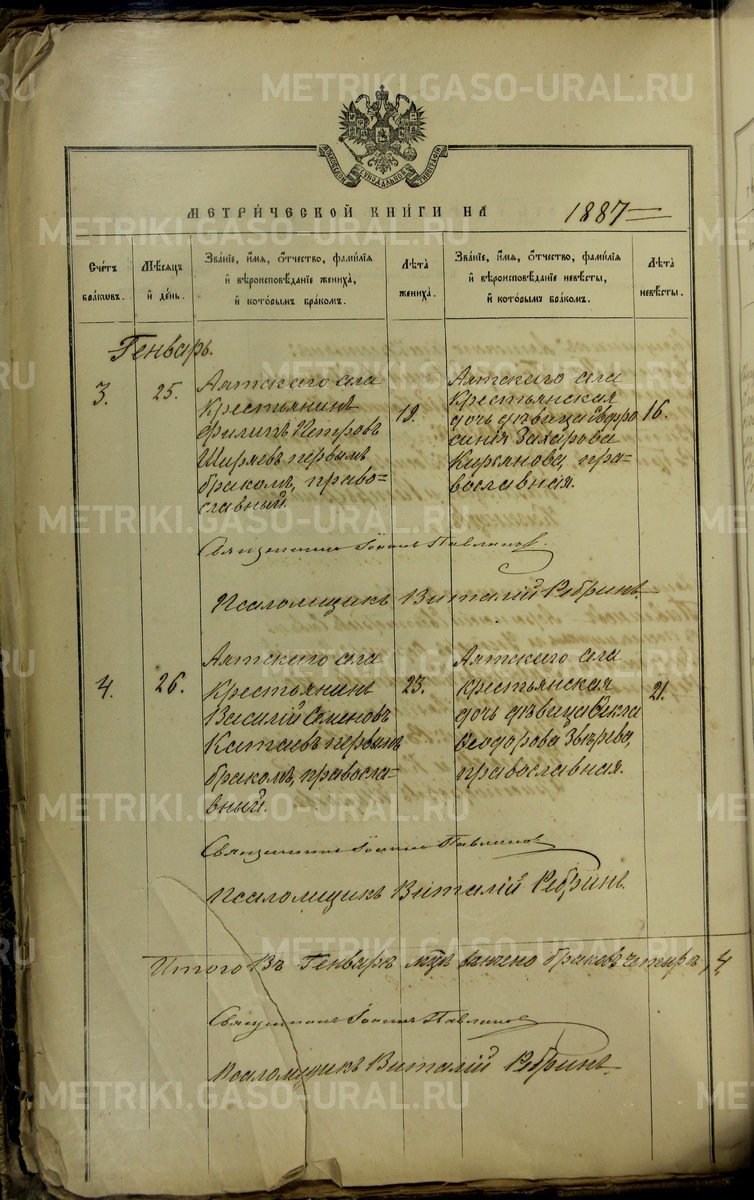 METRIKI.GASO-URAL.RU
МОСКОВСКОЙ СѴНОДАЛЬНОЙ ТИПОГРАФІИ
МЕТРИ́ЧЕСКОЙ КНИ́ГИ НА 1887
Сче́тъ бра́ковъ.
Мѣ́сяцъ и҆ де́нь.
Зва́нїе, и҆́мя, ѻ҆́тчество, фами́лїя
и҆ вѣроисповѣ́данїе жениха̀,
и҆ кото́рымъ бра́комъ.
Лѣ́та жениха̀.
Зва́нїе, и҆́мя, ѻ҆́тчество, фами́лїя
и҆ вѣроисповѣ́данїе невѣ́сты,
и҆ кото́рымъ бра́комъ.
Лѣ́та невѣ́сты.
Генварь.
3.
25.
Аятскаго села
Крестьянинъ
Филипъ Петровъ
Ширяевъ первымъ
бракомъ, право-
славный.
19.
Аятскаго села
Крестьянская
дочь дѣвица Евфро
синія Захарова
Кирьянова, пра-
вославная.
16.
Священникъ Іоаннъ Павлиновъ.
Псаломщикъ Виталій Ребринъ.
4.
26.
Аятскаго села
Крестьянинъ
Василій Семеновъ
Катаевъ первымъ
бракомъ, правосла-
вный.
23.
Аятскаго села
крестьянская
дочь дѣвица Ѳекла
Ѳеодорова Звѣрева,
православная.
21.
Священникъ Іоаннъ Павлиновъ
Псаломщикъ Виталій Ребринъ.
Итого въ Генварѣ мцѣ браковъ четыре, 4
Священникъ Іоаннъ Павлиновъ
Псаломщикъ Виталій Ребринъ.